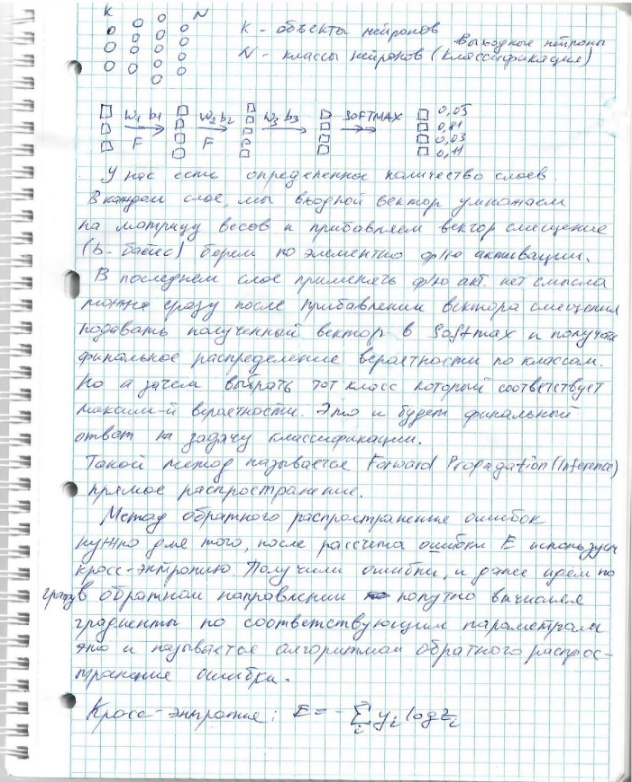 K N K - объекты нейронов выходные нейроны
N - классы нейронов (классификация)
W1 b1 W2 b2 W3 b3 SOFTMAX 0,05
0,81
F F 0,03
0,11
У нас есть определенное количество слоев.
В каждом слое, мы входной вектор умножаем
на матрицу весов и прибавляем вектор смещение
(b - байес) берем по элементно ф/ю активации.
В последнем слое применять ф/ю акт. нет смысла
можно сразу после прибавлении вектора смещения
подавать полученный вектор в Softmax и получаем
финальное распределение вероятности по классам.
Но а зачем выбрать тот класс который соответствует
максим-й вероятности. Это и будет финальный
ответ на задачу классификации.
Такой метод называется Forward Propagation (Inference)
прямое распространение.
Метод обратного распространение ошибок
нужно для того, после рассчета ошибки E используем
кросс-энтропию Получили ошибки, и далее идем по
графу в обратном направлении попутно вычисляя
градиенты по соответствующим параметрам
это и называется алгоритмам обратного распрос-
транение ошибки.
Кросс-энтропия: E = - Σ yi log zi
i